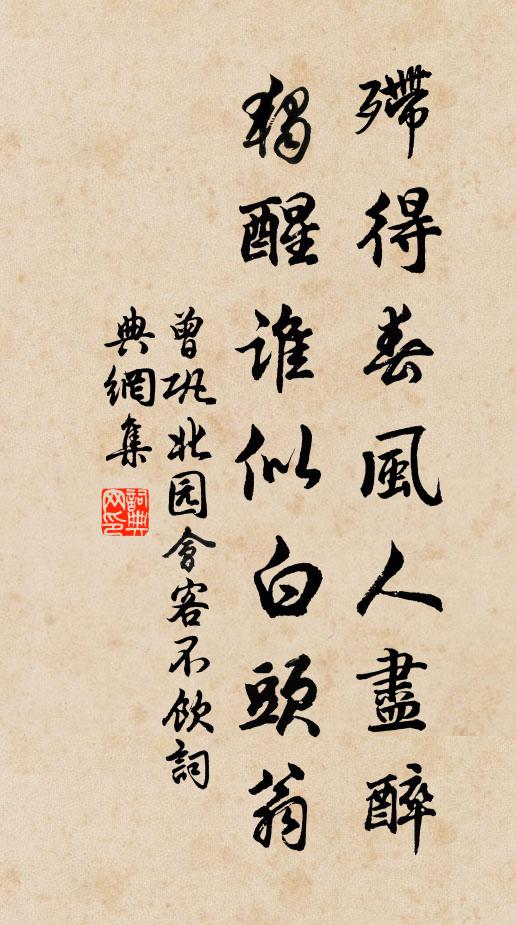 殢得春風人盡醉
獨醒誰似白頭翁
曾巩北园會客不飲詞
典網集
詞典网印